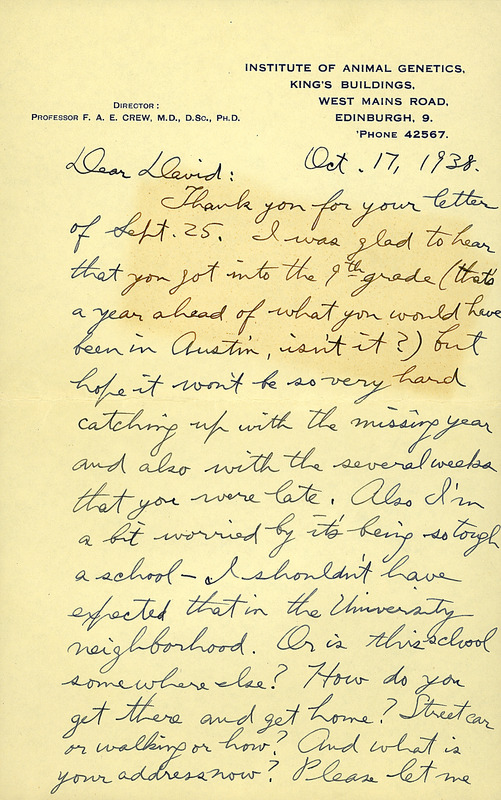 INSTITUTE OF ANIMAL GENETICS,
KING'S BUILDINGS,
WEST MAINS ROAD,
EDINBURGH, 9.
'PHONE 42567.
DIRECTOR:
PROFESSOR F. A. E. CREW, M.D., D.Sc., Ph.D.
Oct. 17, 1938.
Dear David:
Thank you for your letter
of Sept. 25. I was glad to hear
that you got into the 9th grade (that's
a year ahead of what you would have
been in Austin, isn't it?) but
hope it won't be so very hard
catching up with the missing year
and also with the several weeks
that you were late. Also I'm
a bit worried by it's being so tough
a school – I shouldn't have
expected that in the University
neighborhood. Or is this school
somewhere else? How do you
get there and get home? Street car
or walking or how? And what is
your address now? Please let me